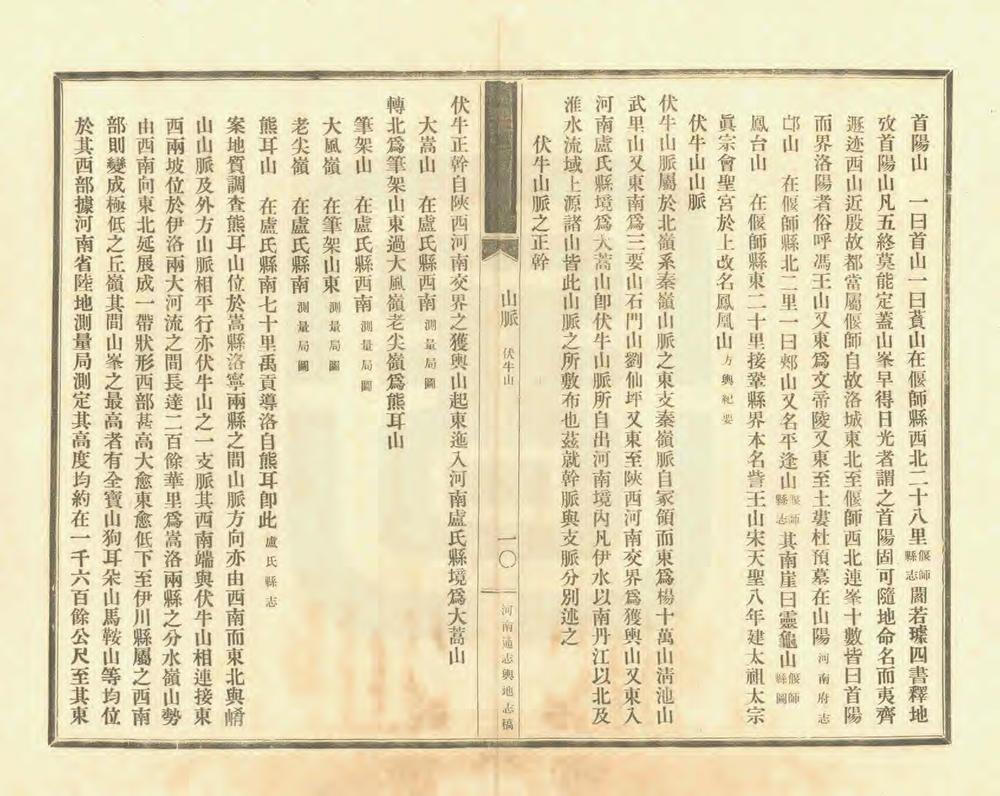 首陽山　一曰首山一曰蒉山在偃師縣西北二十八里偃師縣志閻若璩四書釋地
攷首陽山凡五終莫能定蓋山峯早得日光者謂之首陽固可隨地命名而夷齊
遯迹西山近殷故都當屬偃師自故洛城東北至偃師西北連峯十數皆曰首陽
而界洛陽者俗呼馮王山又東為文帝陵又東至土婁杜預墓在山陽河南府志
邙山　在偃師縣北二里一曰郟山又名平逢山偃師縣志其南崖曰靈龜山偃師縣圖
鳳台山　在偃師縣東二十里接鞏縣界本名訾王山宋天聖八年建太祖太宗
眞宗會聖宮於上改名鳳凰山方輿紀要
伏牛山山脈
伏牛山山脈屬於北嶺系秦嶺山脈之東支秦嶺脈自冢領而東為楊十萬山淸池山
武里山又東南為三要山石門山劉仙坪又東至陝西河南交界為獲輿山又東入
河南盧氏縣境為大蒿山卽伏牛山脈所自出河南境內凡伊水以南丹江以北及
淮水流域上源諸山皆此山脈之所敷布也茲就幹脈與支脈分別述之
伏牛山脈之正幹
山脈　伏牛山　一〇　河南通志輿地志稿
伏牛正幹自陝西河南交界之獲輿山起東迤入河南盧氏縣境為大蒿山
大嵩山　在盧氏縣西南測量局圖
轉北為筆架山東過大風嶺老尖嶺為熊耳山
筆架山　在盧氏縣西南測量局圖
大風嶺　在筆架山東測量局圖
老尖嶺　在盧氏縣南測量局圖
熊耳山　在盧氏縣南七十里禹貢導洛自熊耳卽此盧氏縣志
案地質調查熊耳山位於嵩縣洛寧兩縣之間山脈方向亦由西南而東北與崤
山山脈及外方山脈相平行亦伏牛山之一支脈其西南端與伏牛山相連接東
西兩坡位於伊洛兩大河流之間長達二百餘華里為嵩洛兩縣之分水嶺山勢
由西南向東北延展成一帶狀形西部甚高大愈東愈低下至伊川縣屬之西南
部則變成極低之丘嶺其間山峯之最高者有全寶山狗耳朵山馬鞍山等均位
於其西部據河南省陸地測量局測定其高度均約在一千六百餘公尺至其東